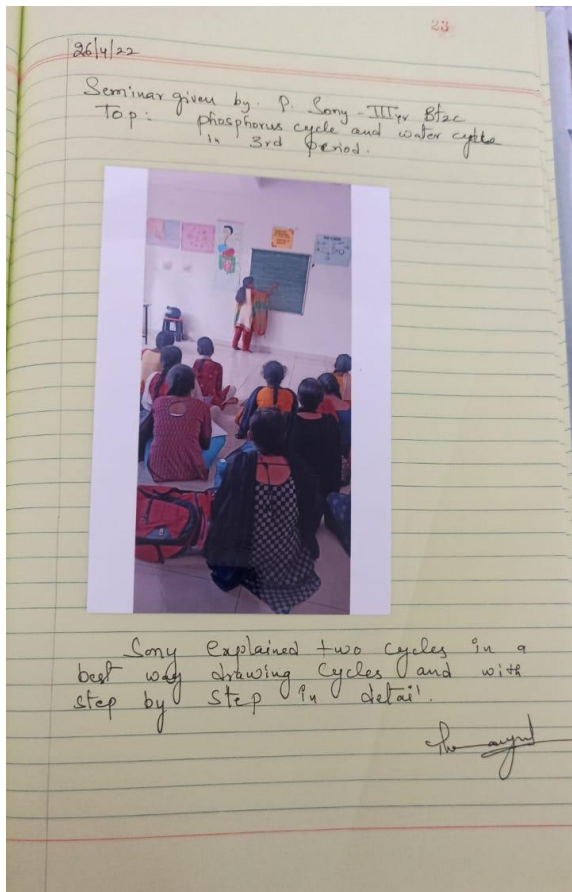 23
26/4/22
Seminar given by. P. Sony - III yr BtZC
Top: phosphorus cycle and water cycle
in 3rd period.
Sony explained two cycles in a
best way drawing cycles and with
step by step in detail.